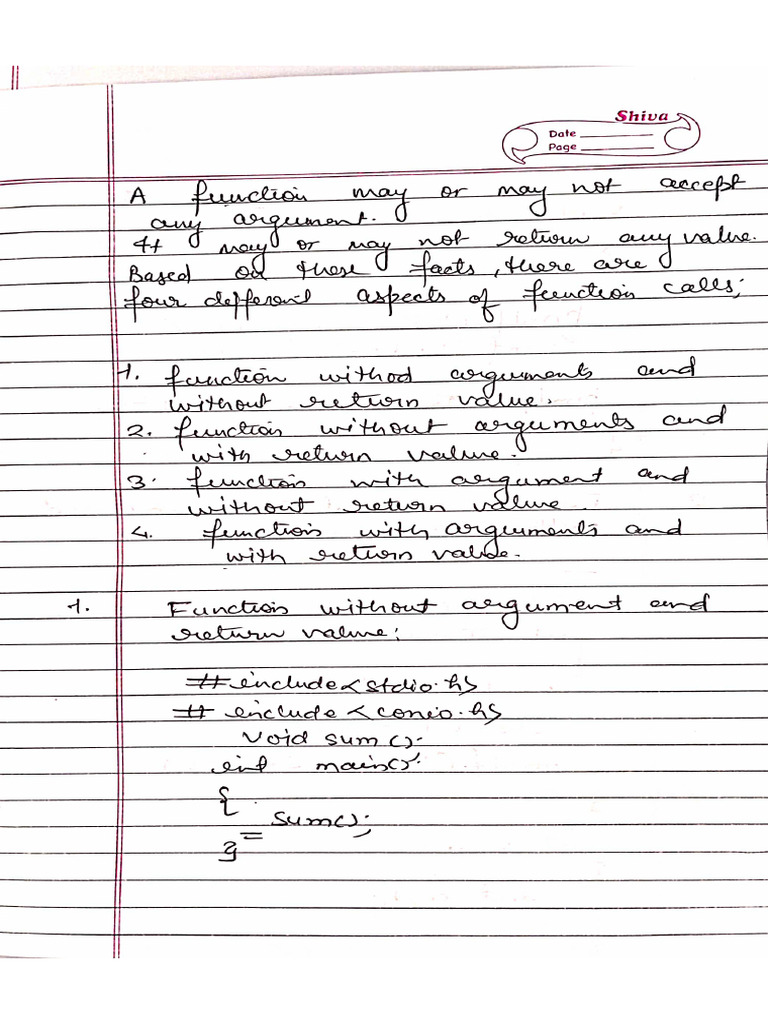 Shiva
Date
Page
A function may or may not accept
any argument.
It may or may not return any value.
Based on these facts, there are
four different aspects of function calls;
1. function without arguments and
without return value.
2. function without arguments and
with return value.
3. function with argument and
without return value
4. function with arguments and
with return value.
1. Function without argument and
return value:
#include<stdio.h>
# include <conio.h>
void sum();
int main()
{
sum();
}